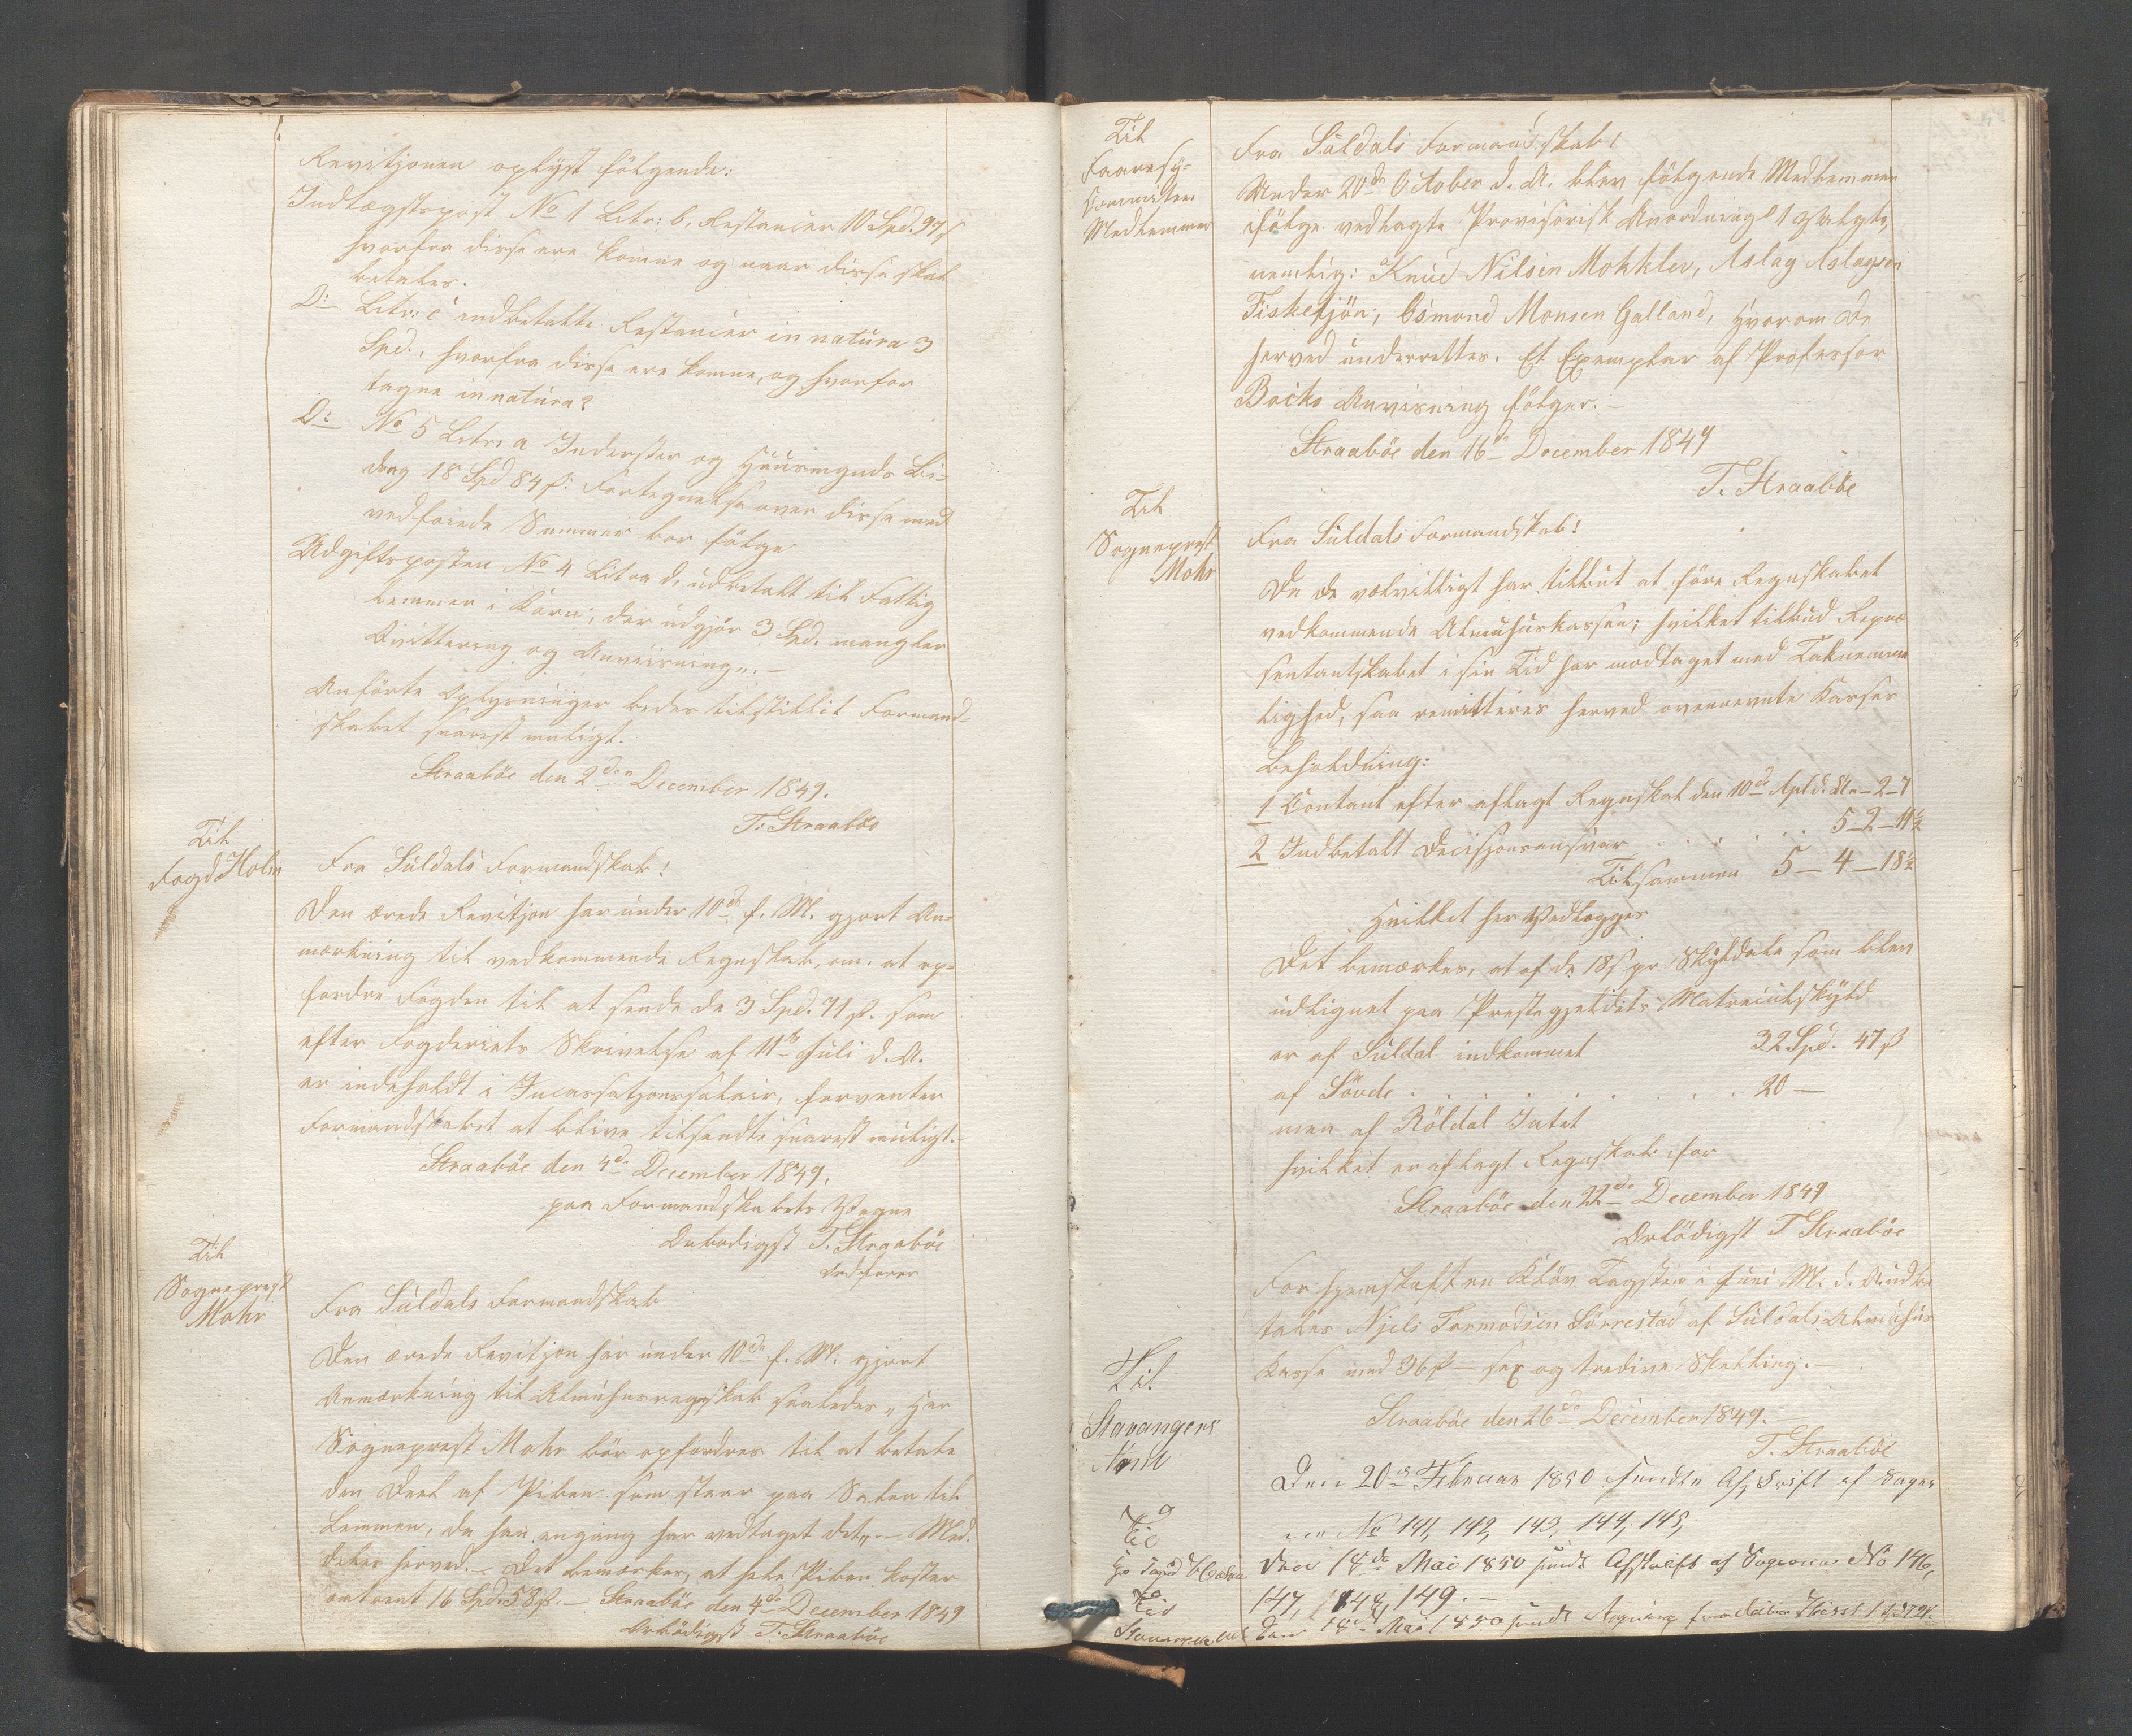 Revisjonen oplyst følgende:
Indtægtspost No 1 Litr: b, Restancer 10 Spd. 97 ß
hvorfra disse ere komne og naar disse skal
betales.
Do Litr: c indbetalte Restancer in natura 3
Spd., hvorfra disse ere komne, og hvorfor
tagne in natura?
Do No 5 Litr: a Inderster og Huusmænds Bi-
drag 18 Spd 84 ß. Fortegnelse over disse med
vedføiede Summer bør følge
Udgiftsposten No 4 Litra d, udbetalt til Fattig
lemmer i Korn, der udgjør 3 Spd. mangler
Qvittering og Anviisning". —
Anførte Oplysninger bedes tilstillet Formand-
skabet snarest muligt.
Straabøe den 2den December 1849.
T. Straabøe
Til
Foged Holm
Fra Suldals Formandskab!
Den ærede Revisjon har under 10de f. M. gjort An-
mærkning til vedkommende Regnskab, om at op-
fordre Fogden til at sende de 3 Spd. 71 ß. som
efter Fogderiets Skrivelse af 11te Juli d. A.
er indeholdt i Incassasjonssalair, forventer
Formandskabet at blive tilsendte snarest muligt.
Straabøe den 4de December 1849.
paa Formandskabets Vegne
Ærbødigst T. Straabøe
Ordfører
Til
Sogneprest
Mohr
Fra Suldals Formandskab
Den ærede Revisjon har under 10de f. M. gjort
Anmærkning til Almuhusregnskab saaledes „Her
Sogneprest Mohr bør opfordres til at betale
den Deel af Piben som staar paa Salen til
Lemmen, da han engang har vedtaget det". — Med-
deles herved. — Det bemærkes, at hele Piben koster
omtrent 16 Spd. 58 ß. — Straabøe den 4de December 1849
Ærbødigst T. Straabøe
Til
Medlemmer
Fra Suldals Formandskab!
Under 20de October d. A. blev følgende Medlemmer
ifølge vedlagte Provisorisk Anordning 1 valgte,
nemlig: Knud Nilsen Mokkler, Aslag Aslagsen
Fisketjøn, Osmond Monsen Galland, hvorom De
herved underrettes. Et Exemplar af Professor
Bocks Anvisning følger. —
Straabøe den 16de December 1849
T. Straabøe
Til
Sogneprest
Mohr
Fra Suldals Formandskab!
Da de velvilligt har tilbut at føre Regnskabet
vedkommende Almuhuskassen; hvilket tilbud Repræ
sentantskabet i sin Tid har modtaget med Taknemme
lighed, saa remitteres herved ovennevnte Kasses
Beholdning:
1 Contant efter aflagt Regnskab den 10de Apl d. A. — 2 — 7
2 Indbetalt Decisjonsansvar . . . . . 5 — 2 — 11½
Tilsammen 5 — 4 — 18½
Hvilket her Vedlægges
Det bemærkes, at af de 18 ß pr Skylddaler som blev
udlignet paa Prestegjeldets Matriculskyld
er af Suldal indkommet 32 Spd. 47 ß
af Søvde . . . . . . . . 20 —
men af Røldal Intet
hvilket er aflagt Regnskab for
Straabøe den 22de December 1849
Ærbødigst T Straabøe
For hjemskaffen Kløv Tagsten i Juni M. d. A. udbe
tales Njels Tormodsen Sørrestad af Suldals Almuhus
Kasse med 36 ß — sex og tredive Skilling.
Straabøe den 26de December 1849.
T. Straabøe
Til
Stavangers
Amt
Den 20de Februar 1850 sendt Afskrift af Sager
No 141, 142, 143, 144, 145,
Til
Den 18de Mai 1850 sendt Afskrift af Sagerne No 146,
147, 148, 149. —
Til
Den 18de Mai 1850 sendt